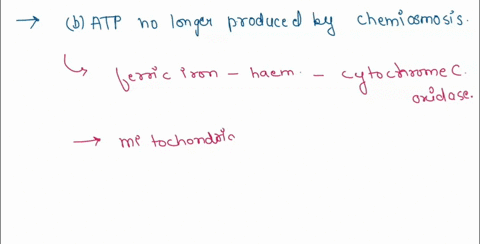 → (b) ATP no longer produced by chemiosmosis.
↳ ferric iron - haem. - cytochrome c.
oxidase.
→ mitochondria